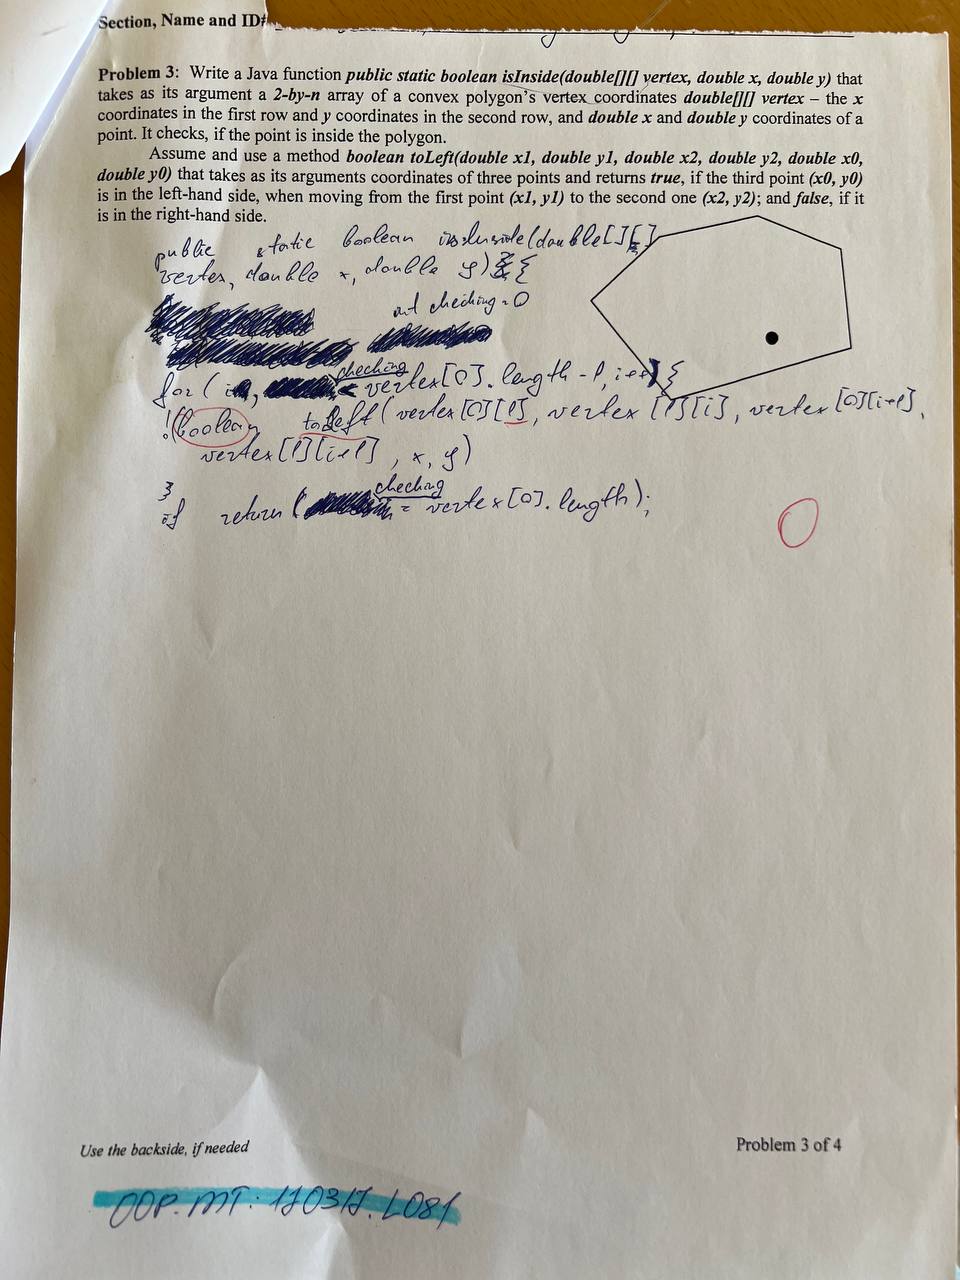 Section, Name and ID#
Problem 3: Write a Java function public static boolean isInside(double[][] vertex, double x, double y) that
takes as its argument a 2-by-n array of a convex polygon's vertex coordinates double[][] vertex – the x
coordinates in the first row and y coordinates in the second row, and double x and double y coordinates of a
point. It checks, if the point is inside the polygon.
Assume and use a method boolean toLeft(double x1, double y1, double x2, double y2, double x0,
double y0) that takes as its arguments coordinates of three points and returns true, if the third point (x0, y0)
is in the left-hand side, when moving from the first point (x1, y1) to the second one (x2, y2); and false, if it
is in the right-hand side.
public static boolean isInside(double[][]
vertex, double x, double y) {
int checking = 0
for ( i checking < vertex[0].length - 1, i++) {
!(boolean toLeft (vertex[0][1], vertex [1][i], vertex [0][i+1],
vertex[1][i+1] , x, y)
}
if return ( checking = vertex[0].length);
0
Use the backside, if needed
Problem 3 of 4
OOP.MT.170317.L081